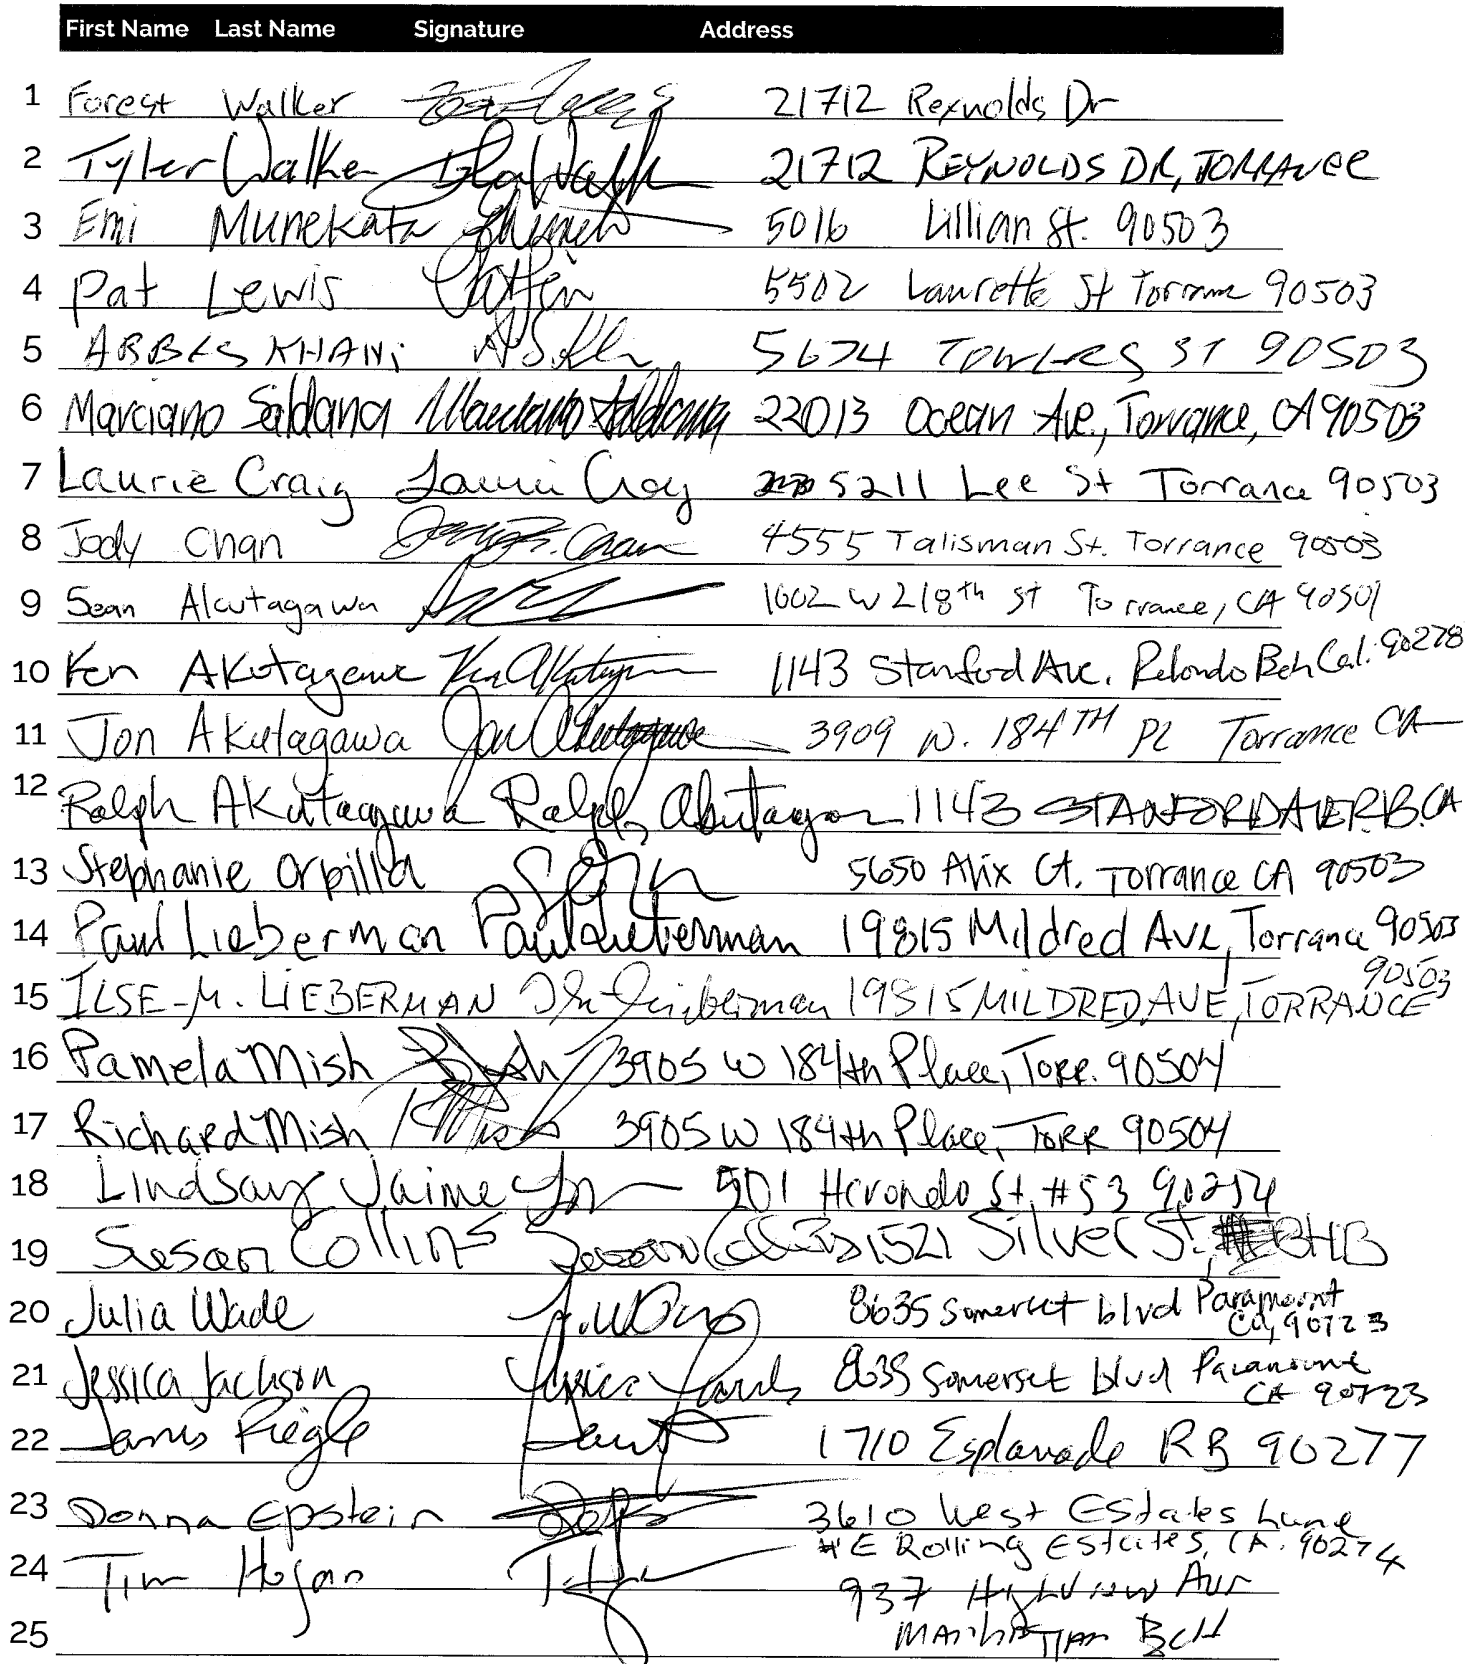 First Name Last Name Signature Address
1 Forest Walker 21712 Reynolds Dr
2 Tyler Walker 21712 REYNOLDS DR, TORRANCE
3 Emi Munekata 5016 Lillian St. 90503
4 Pat Lewis 5502 Laurette St Torrance 90503
5 ABBAS KHANi 5674 TOWERS ST 90503
6 Marciano Saldana Marciano Saldana 22013 Ocean Ave., Torrance, CA 90503
7 Laurie Craig Laurie Craig 5211 Lee St Torrance 90503
8 Jody Chan 4555 Talisman St. Torrance 90503
9 Sean Akutagawa 1602 W 218th St Torrance, CA 90501
10 Ken Akutagawa Ken Akutagawa 1143 Stanford Ave. Redondo Bch Cal. 90278
11 Jon Akutagawa Jon Akutagawa 3909 W. 184TH PL Torrance CA
12 Ralph Akutagawa Ralph Akutagawa 1143 STANFORD AVE R.B. CA
13 Stephanie Orpilla 5650 Alix Ct. Torrance CA 90503
14 Paul Lieberman Paul Lieberman 19815 Mildred Ave, Torrance 90503
15 ILSE-M. LIEBERMAN Lieberman 19815 MILDRED AVE, TORRANCE 90503
16 Pamela Mish 3905 W 184th Place, Torr. 90504
17 Richard Mish 3905 W 184th Place, Torr 90504
18 Lindsay Jaime 501 Herondo St. #53 90254
19 Susan Collins Susan Collins 1521 Silver St, HB
20 Julia Wade 8635 Somerset blvd Paramount
Ca, 90723
21 Jessica Jackson 8635 Somerset blvd Paramount
CA 90723
22 Riegle 1710 Esplanade RB 90277
23 Donna Epstein 3610 West Estates Lane
#E Rolling Estates, CA. 90274
24 Tim Hogan 937 Highview Ave
Manhattan Bch
25